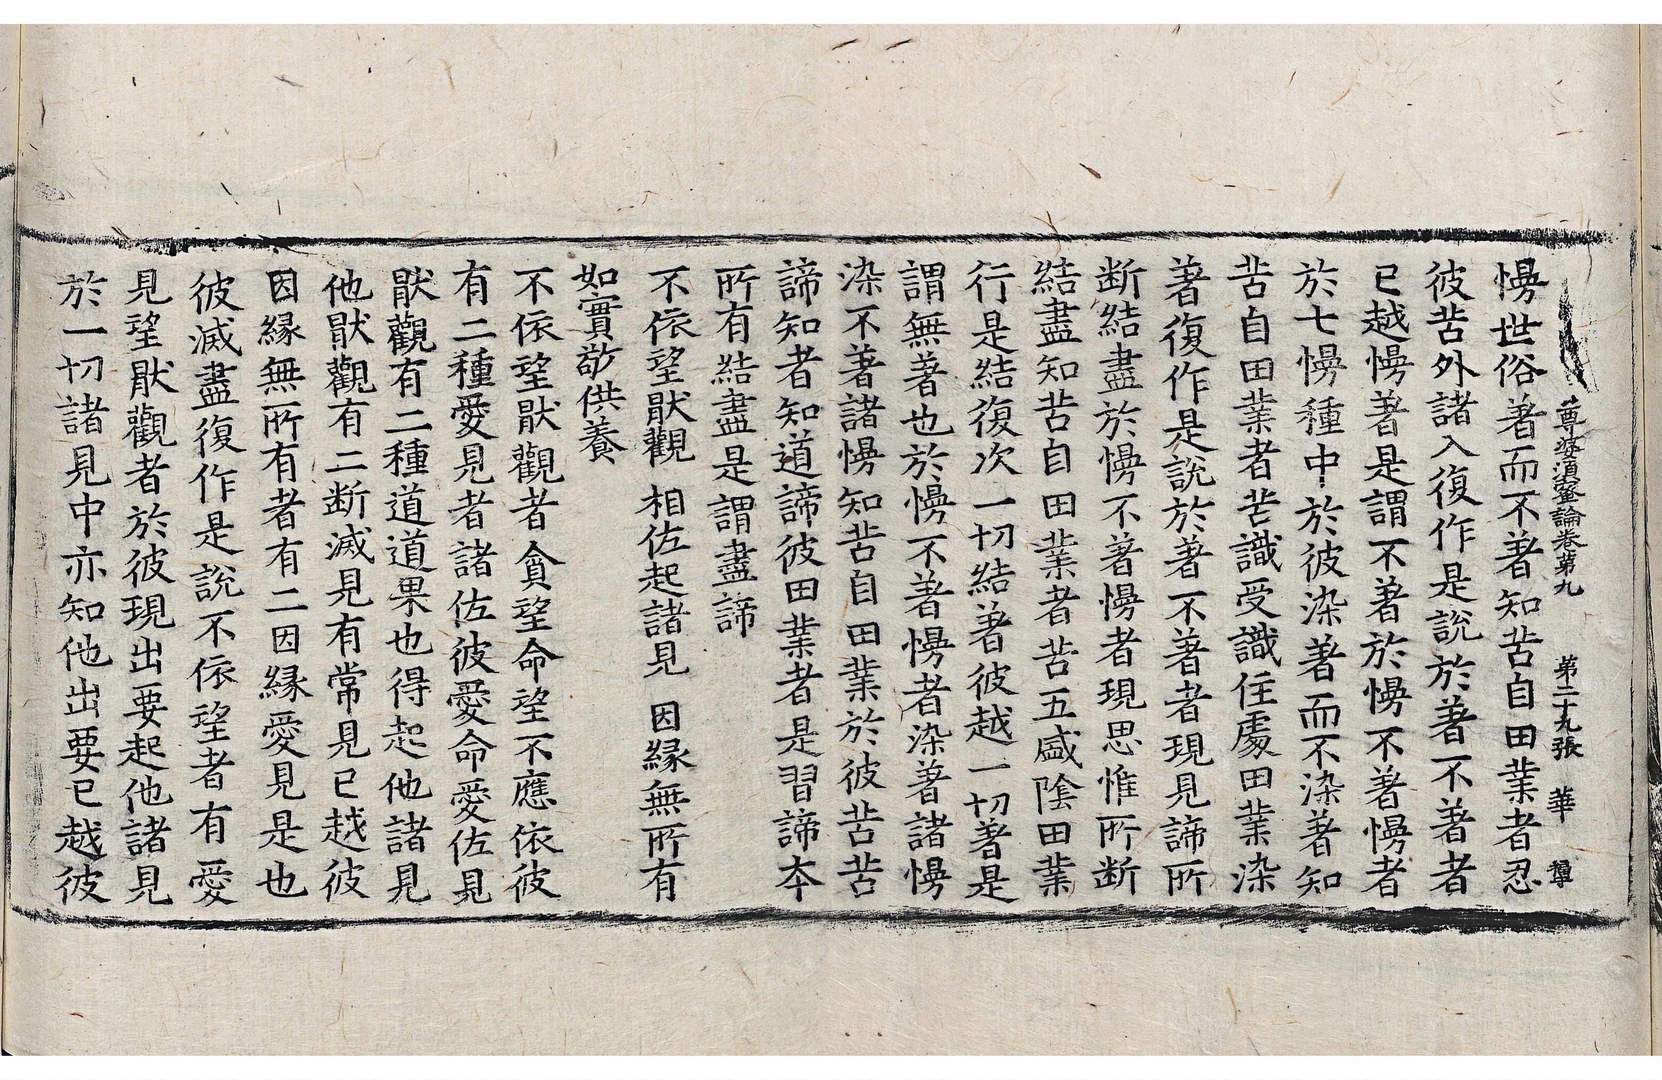 尊婆湏蜜論卷第九 第二十九張 華
慢世俗著而不著知苦自田業者忍
彼苦外諸入復作是說於著不著者
已越慢著是謂不著於慢不著慢者
於七慢種中於彼染著而不染著知
苦自田業者苦識受識住處田業染
著復作是說於著不著者現見諦所
断結盡於慢不著慢者現思惟所断
結盡知苦自田業者苦五盛陰田業
行是結復次一切結著彼越一切著是
謂無著也於慢不著慢者染著諸慢
染不著諸慢知苦自田業於彼苦苦
諦知者知道諦彼田業者是習諦本
所有結盡是謂盡諦
不依望猒觀 相佐起諸見 因緣無所有
如實敬供養
不依望猒觀者貪望命望不應依彼
有二種愛見者諸佐彼愛命愛佐見
猒觀有二種道道果也得起他諸見
他猒觀有二断滅見有常見已越彼
因緣無所有者有二因緣愛見是也
彼滅盡復作是說不依望者有愛
見望猒觀者於彼現出要起他諸見
於一切諸見中亦知他出要已越彼